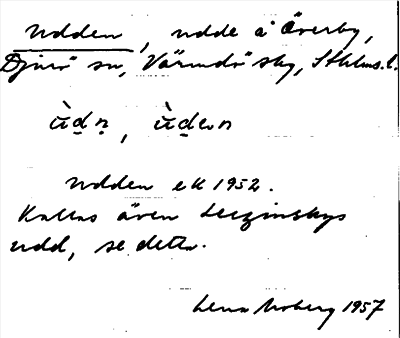 Udden, udde å Överby,
Djurö sn, Värmdö skg, Sthlms. l.
ùdn,
udden ek 1952.
Kallas även Leczinskys
udd, se detta.
Lena Moberg 1957